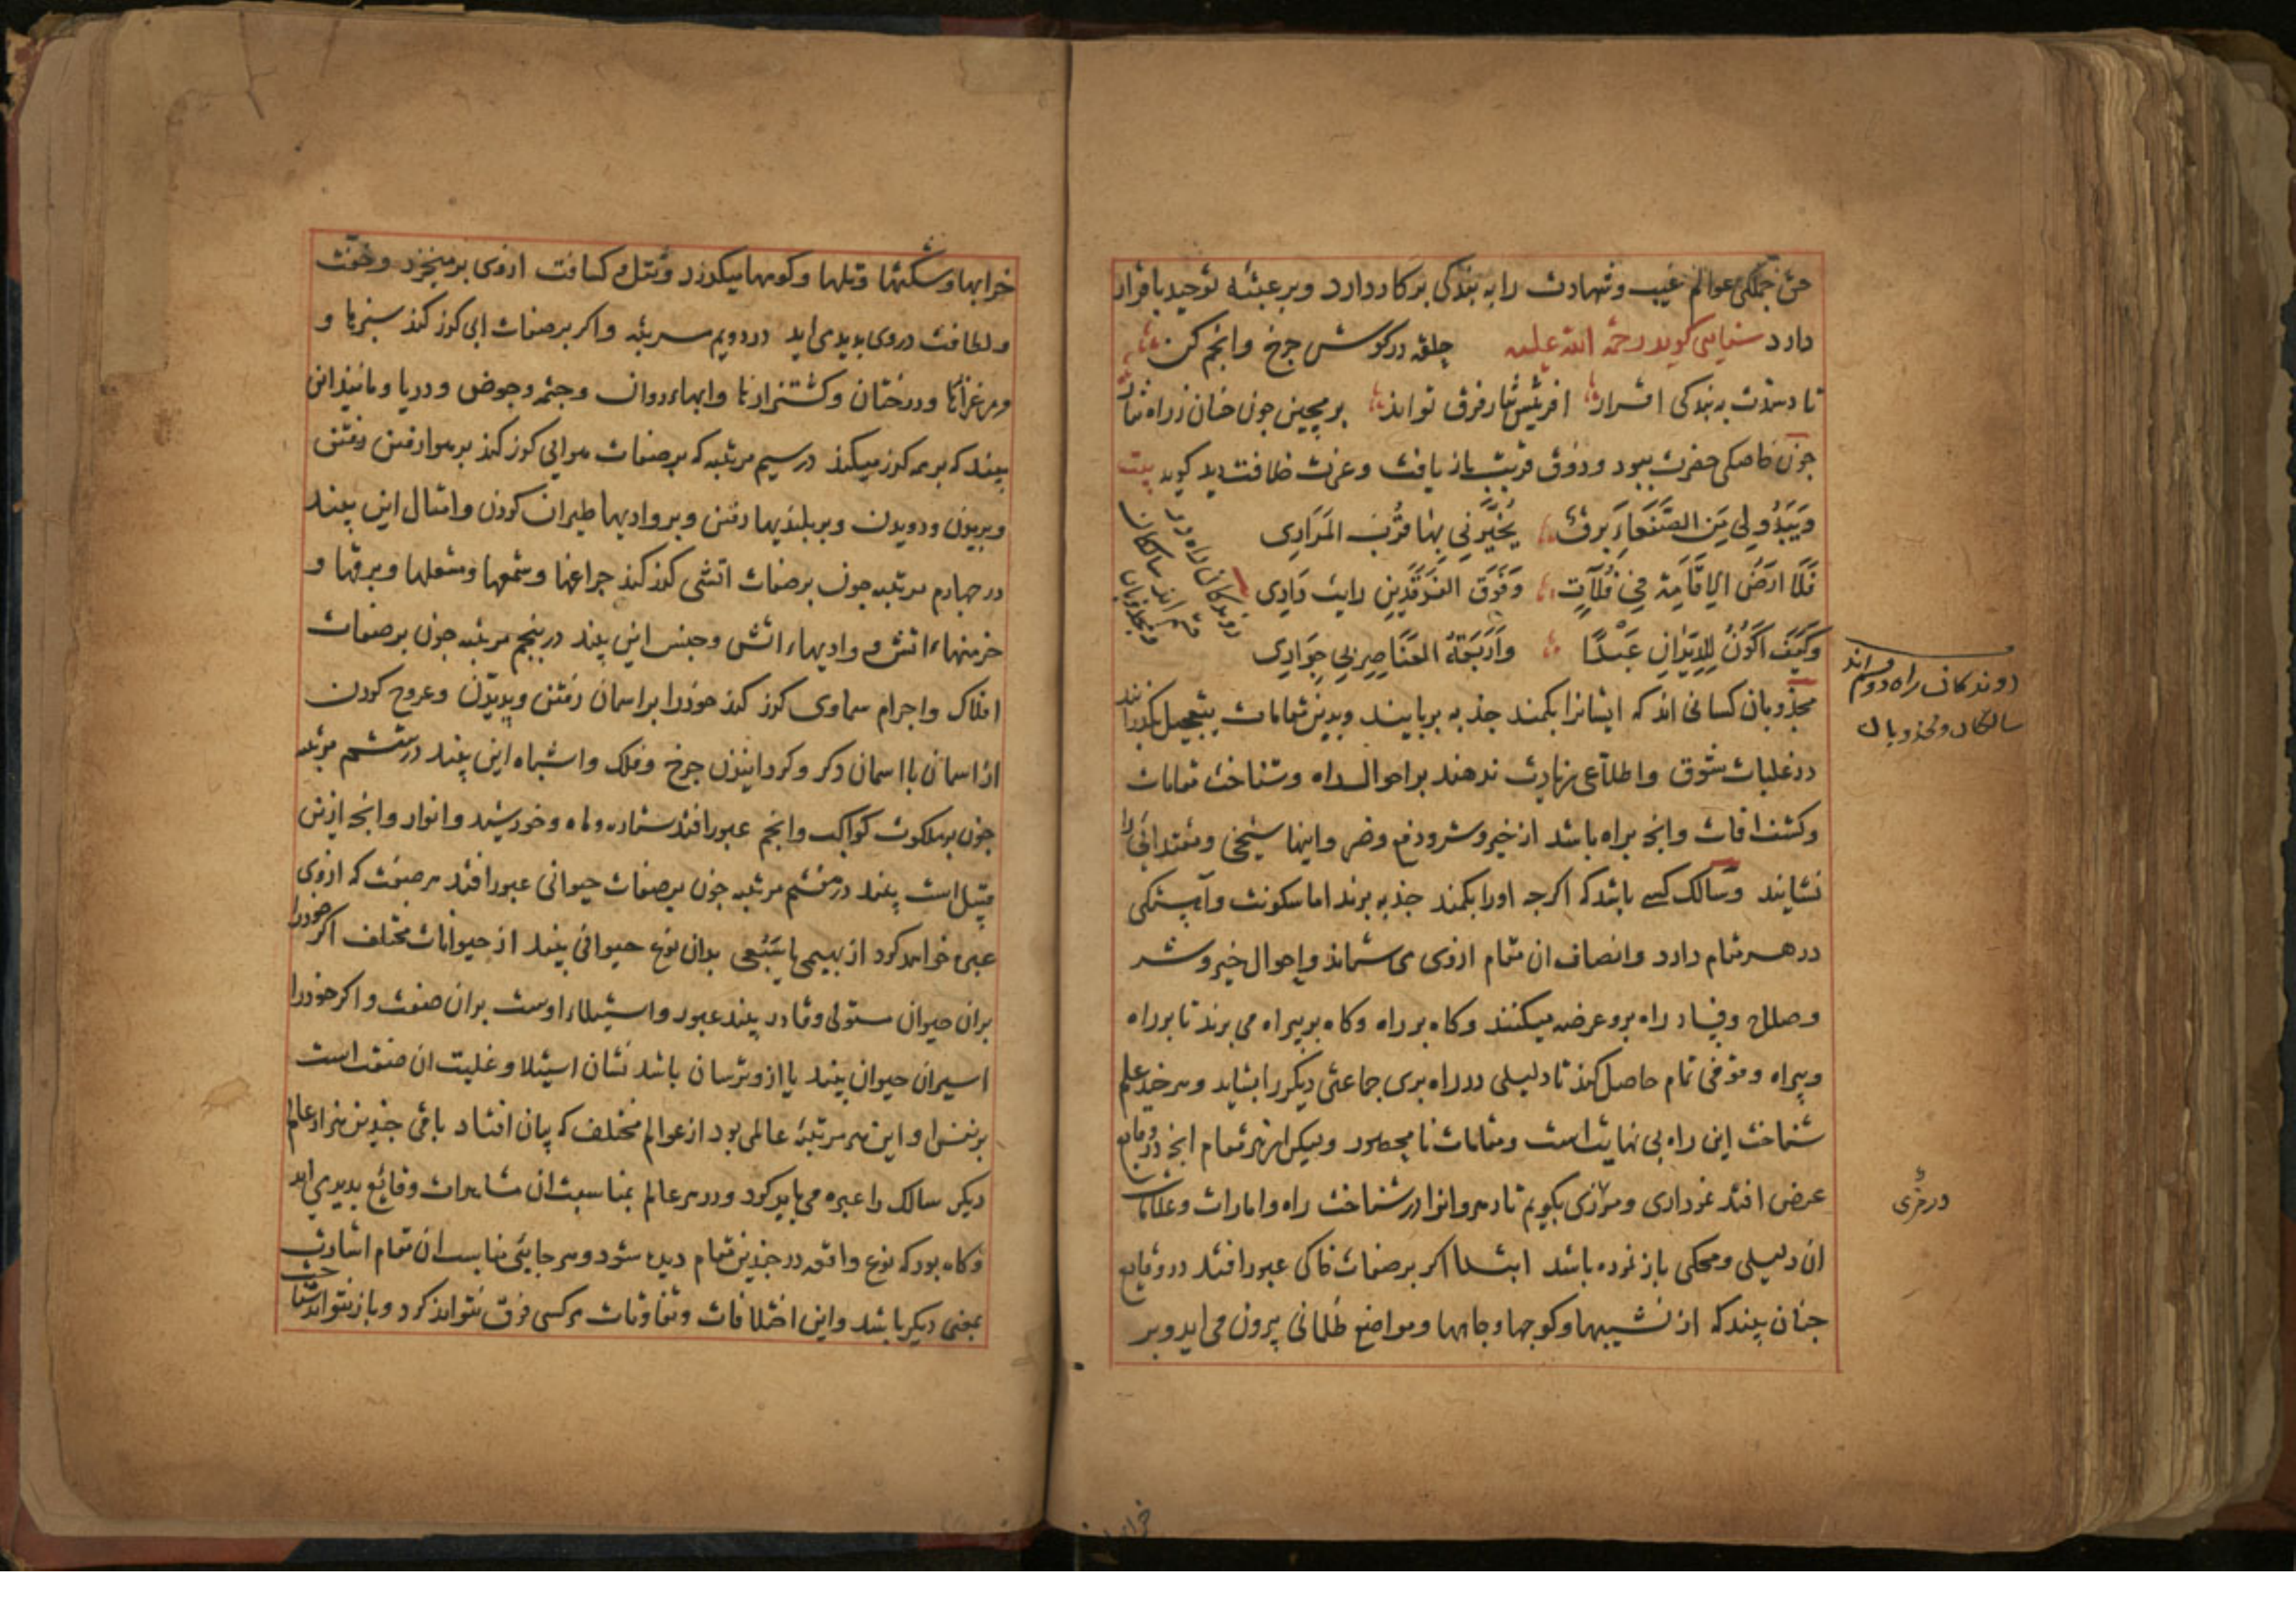 حق جملکی عوالم غیب و شهادت را به بندکی بر کار دارد و بر عتبه توحید باقرار
دارد سنایی کوید رحمة الله علیه حلقه در کوش جرخ و انجم کن
تا دهندت به بندکی اقرار افرینش نثار فرق تواند بر مچین جون خسان ز راه نثار
جون خاصکی حضرت ببود و ذوق قربت باز یافت و عزت خلافت دید کوید بیت
وَيَبْدُو لِي مِنَ الصَّنْعَاءِ بَرْقٌ يُخَيِّرُنِي بِهَا قُرْبَ الْمَزَادِي
فَلَا ارْضُ الاِقَامَةِ فِي فَلَاتٍ وَفَوْقَ الْفَرْقَدَيْنِ رایت زَادِي
وَكَيْفَ اكُونُ لِلدِّيْرَانِ عَبْدًا وَأَرْبَعَةُ الْعَنَاصِرِ لِي جَوَادِي
روندکان راه دو قسم اند سالکان و مجذوبان
مجذوبان کسانی اند که ایشانرا بکمند جذبه بربایند و بدین مقامات بتعجیل بکذرانند
در غلبات شوق و اطلاعی زیادت ندهند بر احوال راه و شناخت مقامات
و کشف افات و انجه بر راه باشد از خیر و شر و نفع و ضر و اینها شیخی و مقتدائی را
نشایند و سالک کسی باشد که اکرجه او را بکمند جذبه برند اما سکونت و آهستکی
در هر مقام دارد و انصاف ان مقام از وی می ستاند و احوال خیر و شر
و صلاح و فساد راه برو عرضه میکنند و کاه بر راه و کاه بر بیراه می برند تا بر راه
و بیراه وقوفی تمام حاصل کند تا دلیلی در راه بری جماعتی دیکر را بشاید و هر جند علم
شناخت این راه بی نهایتست و مقامات نامحصور ولیکن از هر مقام انجه در وقایع
عرض افتد نموداری و مرزی بکویم تا رهروانرا در شناخت راه و امارات و علامات
ان دلیلی و محکی باز نموده باشد ابتدا اکر بر صفات خاکی عبور افتد در وقایع
جنان بیند که از نشیبها و کوجها و جاهها و مواضع ظلمانی بیرون می اید و بر
روندکان راه دو قسم اند
سالکان و مجذوبان
خرابها
خرابها و شکستها و تلها و کوهها میکذرد و ثقل و کثافت از وی بر میخیزد و خفت
و لطافت در وی بدید می اید در دویم مرتبه و اکر بر صفات ابی کذر کند سبزیها و
و مرغزارها و درختان و کشتزارها و ابهاء روان و جشمه و حوض و دریا و مانند این
بیند که بر همه کذر میکند در سیم مرتبه که بر صفات هوایی کذر کند بر هوا رفتن رفتن
و پریدن و دویدن و بر بلندیها رفتن و بر وادیها طیران کردن و امثال این بیند
در جهارم مرتبه جون بر صفات اتشی کذر کند جراغها و شمعها و مشعلها و برقها و
خرمنهاء اتش و وادیهاء اتش و جنس این بیند در پنجم مرتبه جون بر صفات
افلاک و اجرام سماوی کذر کند خود را بر اسمان رفتن و پریدن و عروج کردن
از اسمان با اسمان دکر و کردانیدن جرخ و فلک و اشباه این بیند در ششم مرتبه
جون بر ملکوت کواکب و انجم عبور افتد ستاره و ماه و خورشید و انوار و انجه ازین
قبیل است بیند در هفتم مرتبه جون بر صفات حیوانی عبور افتد هر صفت که از وی
عبره خواهد کرد از بهیمی یا سبعی بدان نوع حیوانی بیند از حیوانات مختلف اکر خود را
بران حیوان مستولی و قادر بیند عبور و استیلاء اوست بران صفت و اکر خود را
اسیران حیوان بیند یا ازو ترسان باشد نشان استیلا و غلبت ان صفت است
بر نفس او این هر مرتبه عالمی بود از عوالم مختلف که بیان افتاد باقی جندین هزار عالم
دیکر سالک را عبره می باید کرد و در هر عالم بمناسبت ان مشاهدات وقایع بدید می اید
و کاه بود که نوع واقعه در جندین مقام دیده شود و هر جایی مناسب ان مقام اشارت
بمعنی دیکر باشد و این اختلافات و تفاوتات هر کسی فرق نتواند کرد و باز نتواند شناخت